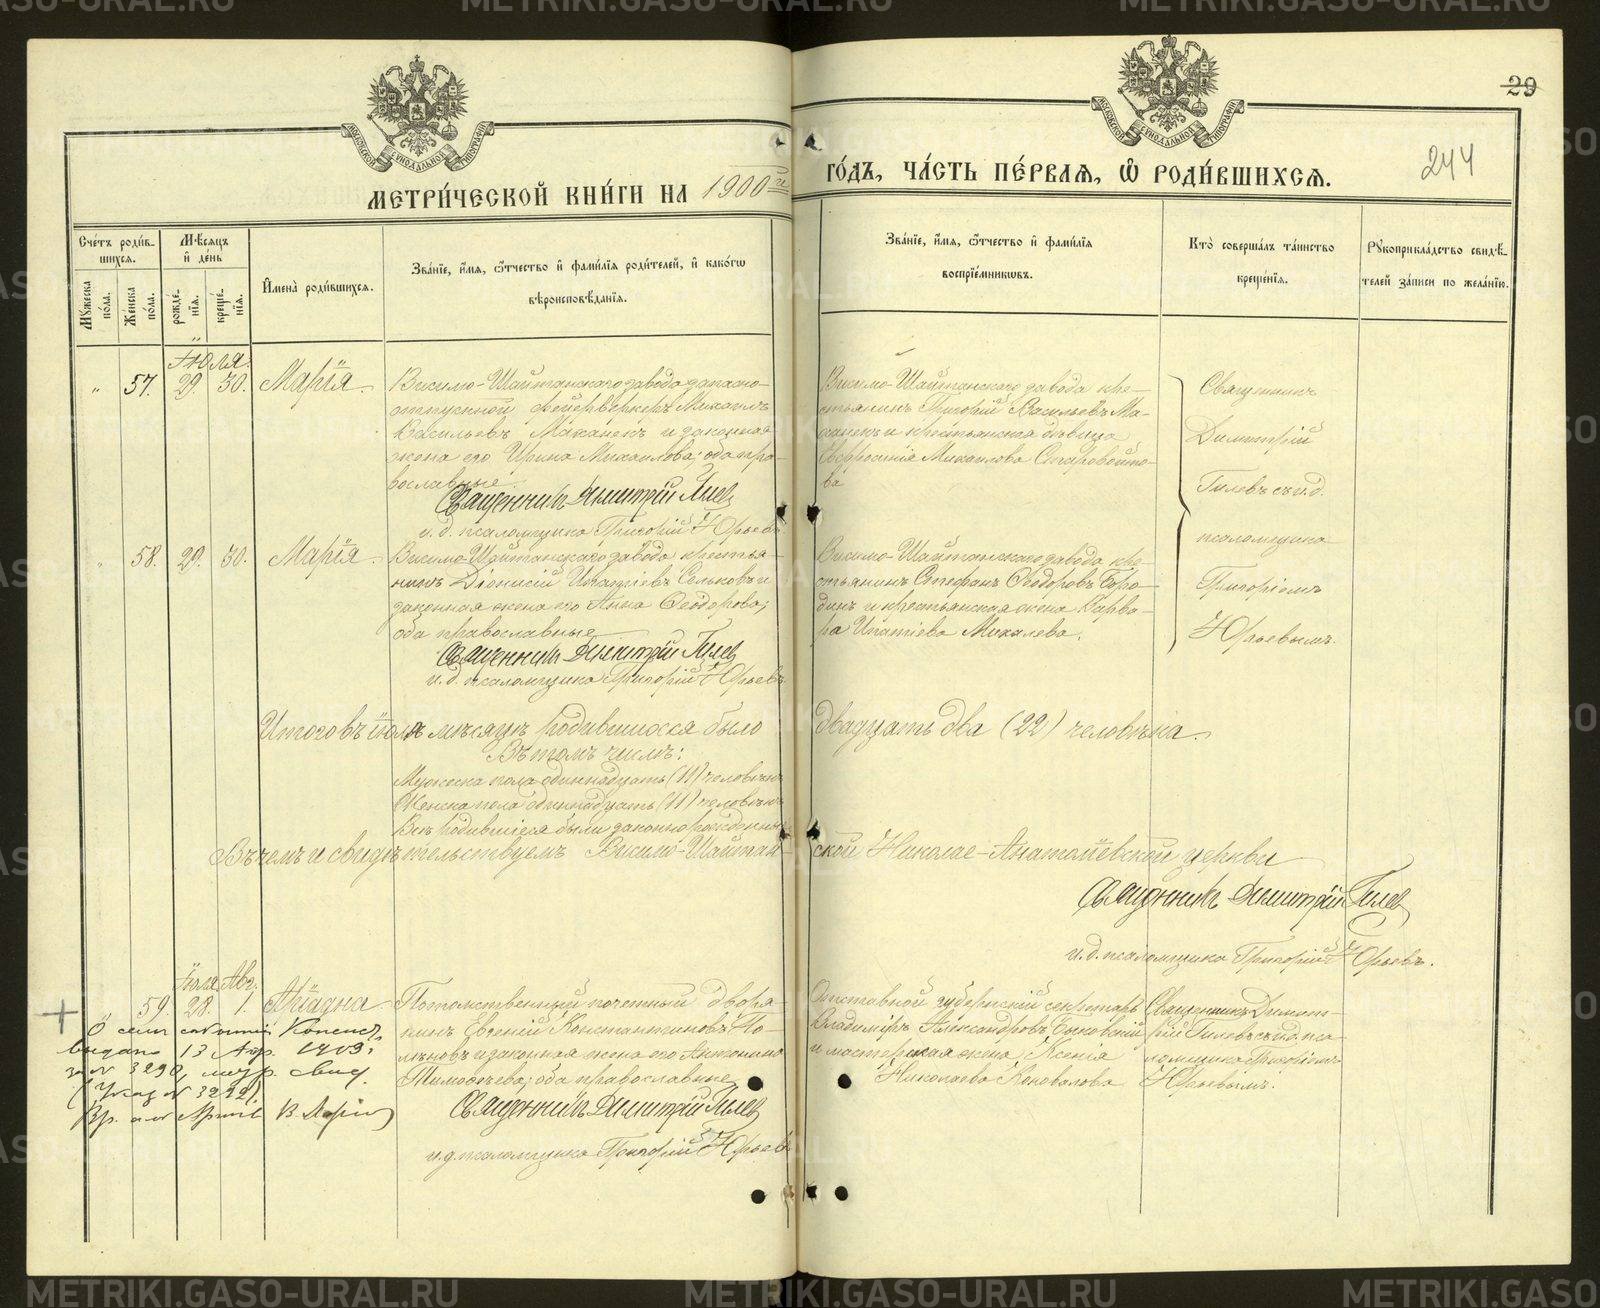 29
244
МЕТРИ́ЧЕСКОЙ КНИ́ГИ НА 1900й ГО́ДЪ, ЧА́СТЬ ПЕ́РВАЯ, Ѡ РОДИ́ВШИХСЯ.
Сче́тъ роди́в-
шихся.
Му́жеска по́ла.
Же́нска по́ла.
Мѣ́сяцъ и де́нь
рожде́-
нія.
креще́-
нія.
Имена̀ роди́вшихся.
Зва́ніе, и́мя, ѻ҆́тчество и фами́лія роди́телей, и како́гѡ
вѣроисповѣ́данія.
Зва́ніе, и́мя, ѻ҆́тчество и фами́лія
воспріе́мниковъ.
Кто̀ соверша́лъ та́инство
креще́нія.
Рукоприкла́дство свидѣ́-
телей за́писи по жела́нію.
Іюля
" 57. 29. 30. Марія.
Висимо-Шайтанскаго завода запасно-
отпускной фейерверкеръ Михаилъ
Васильевъ Маханекъ и законная
жена его Ирина Михаилова; оба пра-
вославные.
Священникъ Димитрій Гилев
и. д. псаломщика Григорій Юрьевъ
Висимо-Шайтанскаго завода кре-
стьянинъ Григорій Васильевъ Ма-
ханекъ и крестьянская дѣвица
Евфросинія Михаилова Старовойто-
ва
Священникъ
Димитрій
Гилевъ съ и. д.
псаломщика
Григоріемъ
Юрьевымъ.
" 58. 29. 30. Марія.
Висимо-Шайтанскаго завода крестья-
нинъ Діонисій Ипатіевъ Сельковъ и
законная жена его Анна Ѳеодорова;
оба православные
Священникъ Димитрій Гилев
и. д. псаломщика Григорій Юрьевъ
Висимо-Шайтанскаго завода кре-
стьянинъ Стефанъ Ѳеодоровъ Боро-
динъ и крестьянская жена Варва-
ра Ипатіева Михалева.
Итого въ іюлѣ мѣсяцѣ родившихся было двадцать два (22) человѣка.
Въ томъ числѣ:
Мужеска пола одиннадцать (11) человѣкъ
Женска пола одиннадцать (11) человѣкъ
Всѣ родившіеся были законнорожденные
Въ чемъ и свидѣтельствуемъ Висимо-Шайтанской Николае-Анатоліевской церкви
Священникъ Димитрій Гилев
и. д. псаломщика Григорій Юрьевъ.
Іюля Авг.
59. 28. 1. Аріадна.
Потомственный почетный дворя-
нинъ Евгеній Константиновъ По-
лѣновъ и законная жена его Антонина
Тимофѣева; оба православные
Священникъ Димитрій Гилев
и. д. псаломщика Григорій Юрьевъ
Отставной губернскій секретарь
Владиміръ Александровъ Быковскій
и мастерская жена Ксенія
Николаева Коновалова
Священникъ Димит-
рій Гилевъ съ и. д. пса-
ломщика Григоріемъ
Юрьевымъ.
О семъ
выдано 13 Апр. 1909.
за № 3290, метр. свид.
(Указ № 3292).
METRIKI.GASO-URAL.RU